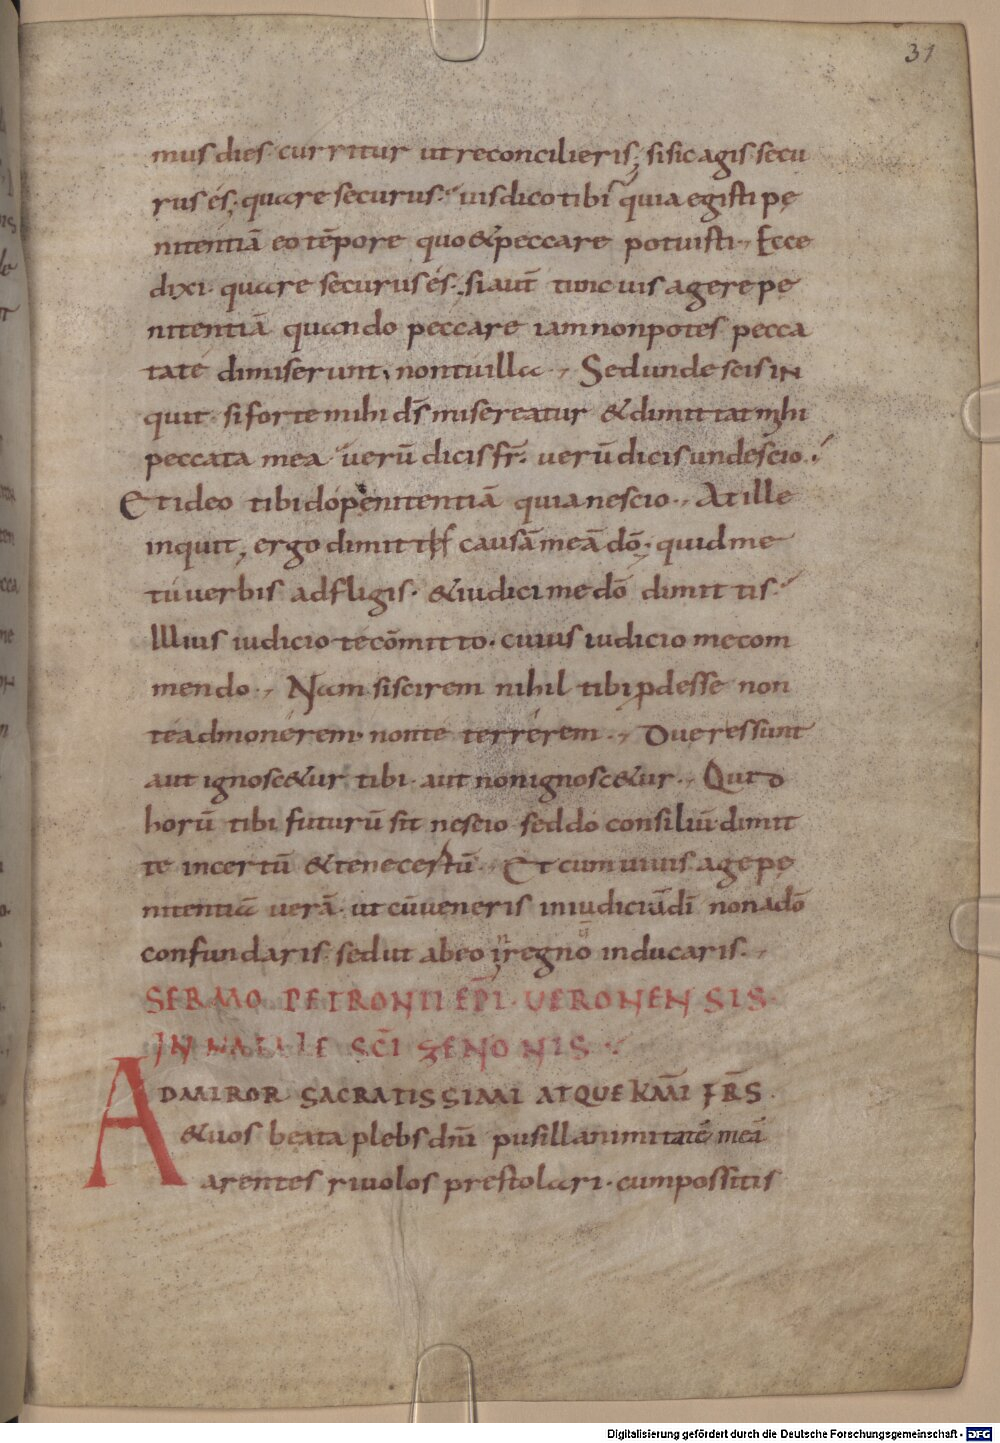 31
mus dies curritur ut reconcilieris; si sic agis secu
rus és; quare securus? uis dico tibi quia egisti pę
nitentiā eo tēpore quo & peccare potuisti. Ecce
dixi quare securus és. si aūt tunc uis agere pę
nitentiā quando peccare iam non potes pecca
ta té dimiserunt, non tu illa. Sed unde scis in
quit si forte mihi ds̄ misereatur & dimittat mihi
peccata mea uerū dicis fr̄. uerū dicis unde scio?
Et ideo tibi dó penitentiā quia nescio. At ille
inquit, ergo dimitte causā meā dō; quid me
tú uerbis adfligis. & iudici me dō dimittis?
Illius iudicio te cōmitto. cuius iudicio me com
mendo. Nam si scirem nihil tibi ꝓdesse non
té admonérem. non te terrérem. Duę res sunt
aut ignosc&ur tibi. aut non ignosc&ur. Quid
horū tibi futurū sit nescio sed do consiliū. dimit
te incertū & tene certū. Et cum uiuis age pę
nitentiā uerā. ut cū ueneris in iudiciū dī non a dō
confundaris. sed ut ab eo in regnō inducaris.
SERMO PETRONII EPĪ. UERONENSIS
IN NATALE SC̄I ZENONIS
ADMIROR SACRATISSIMI ATQUE KM̄I FR̄S.
& uos beata plebs dn̄i pusillanimitatē meā
arentes riuolos prestolari. cum possitis
Digitalisierung gefördert durch die Deutsche Forschungsgemeinschaft - DFG